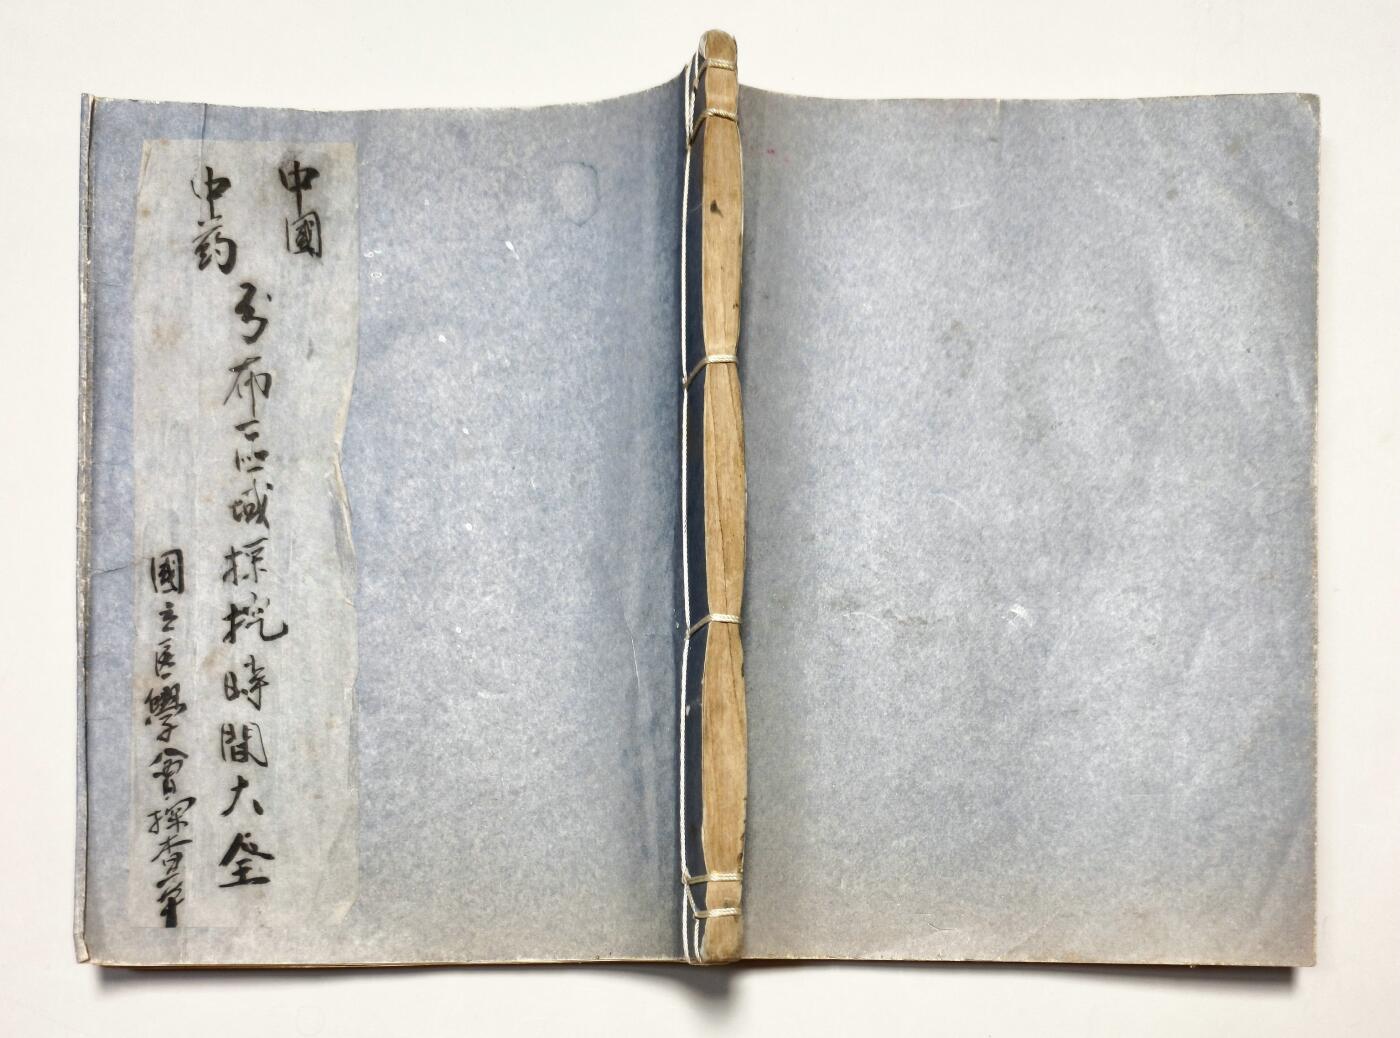 中國
中药
分布區域採挖時間大全
國立医學會探查草